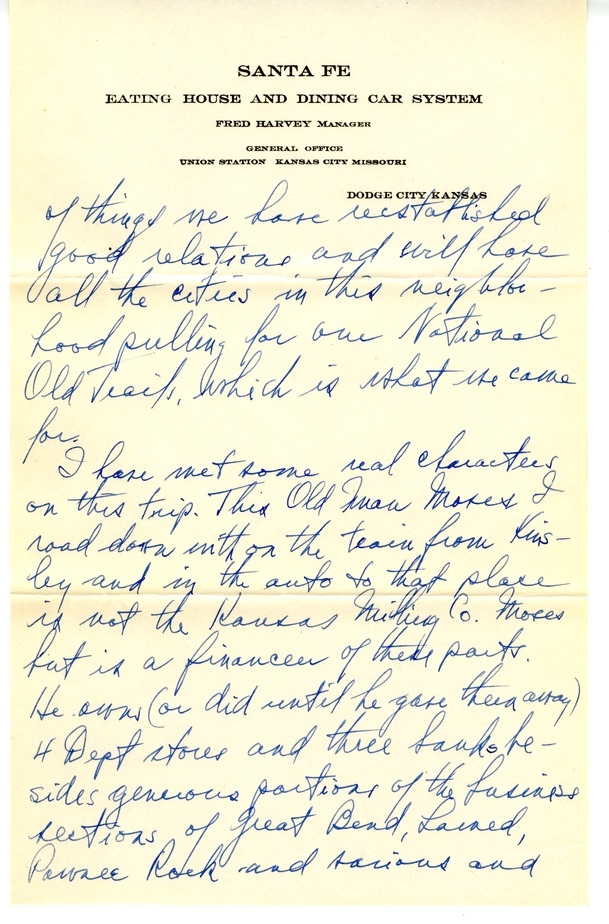 SANTA FE
EATING HOUSE AND DINING CAR SYSTEM
FRED HARVEY MANAGER
GENERAL OFFICE
UNION STATION KANSAS CITY MISSOURI
DODGE CITY, KANSAS
of things we have reestablished
good relations and will have
all the cities in this neighbor-
hood pulling for our National
Old Trails, which is what we came
for.
I have met some real characters
on this trip. This Old man Moses I
road down with on the train from Kins-
ley and in the auto to that place
is not the Kansas Milling Co. Moses
but is a financeer of these parts.
He owns (or did until he gave them away)
4 Dept stores and three banks be-
sides generous portions of the business
sections of Great Bend, Larned,
Pawnee Rock and various and